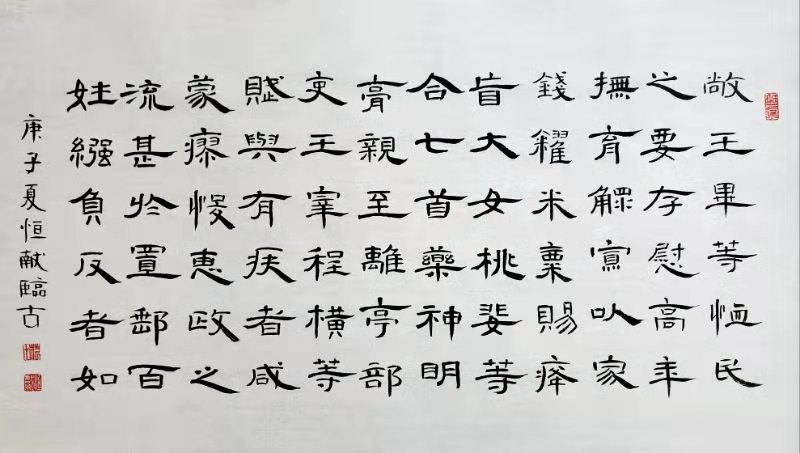 敞王畢等恤民
之要存慰高年
撫育鰥寡以家
錢糴米粟賜癃
盲大女桃婓等
合七首藥神明
膏親至離亭部
吏王宰程橫等
賦與有疾者咸
蒙瘳悛惠政之
流甚於置郵百
姓繈負反者如
庚子夏恒献臨古